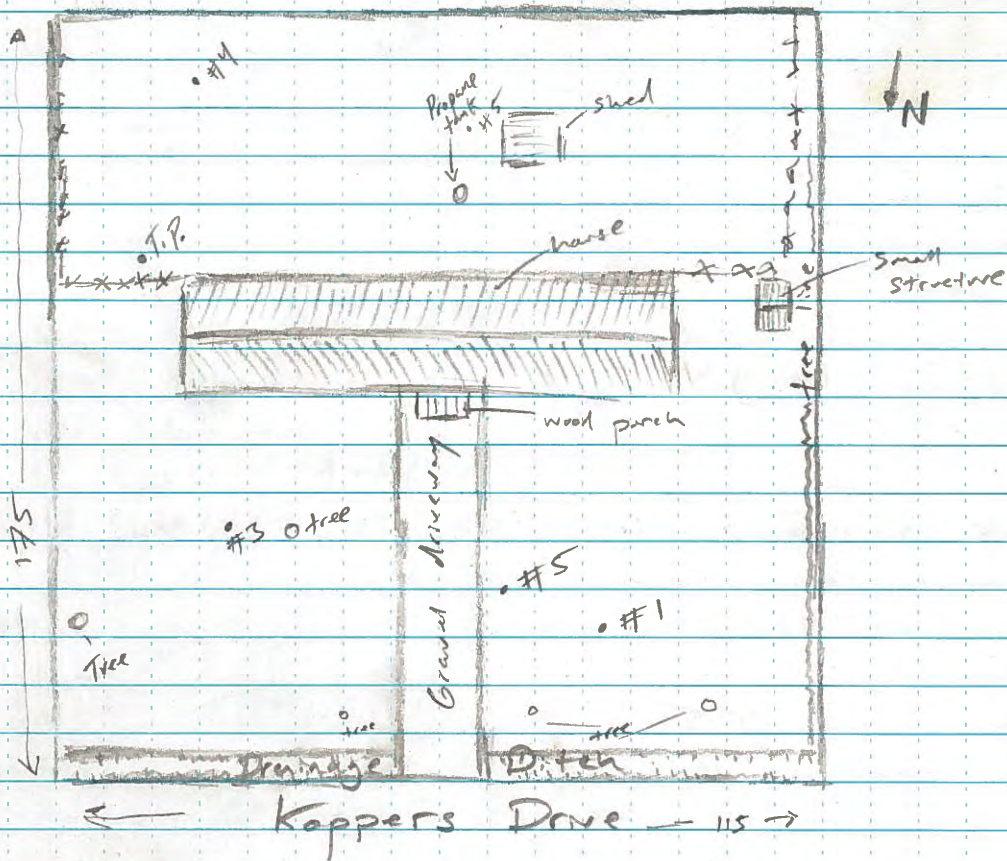 #4
Propane
tank
#5
shed
N
T.P.
house
small
structure
tree line
wood porch
175
#3
tree
Gravel driveway
#5
#1
Tree
tree
tree
Drainage Ditch
Koppers Drive 115